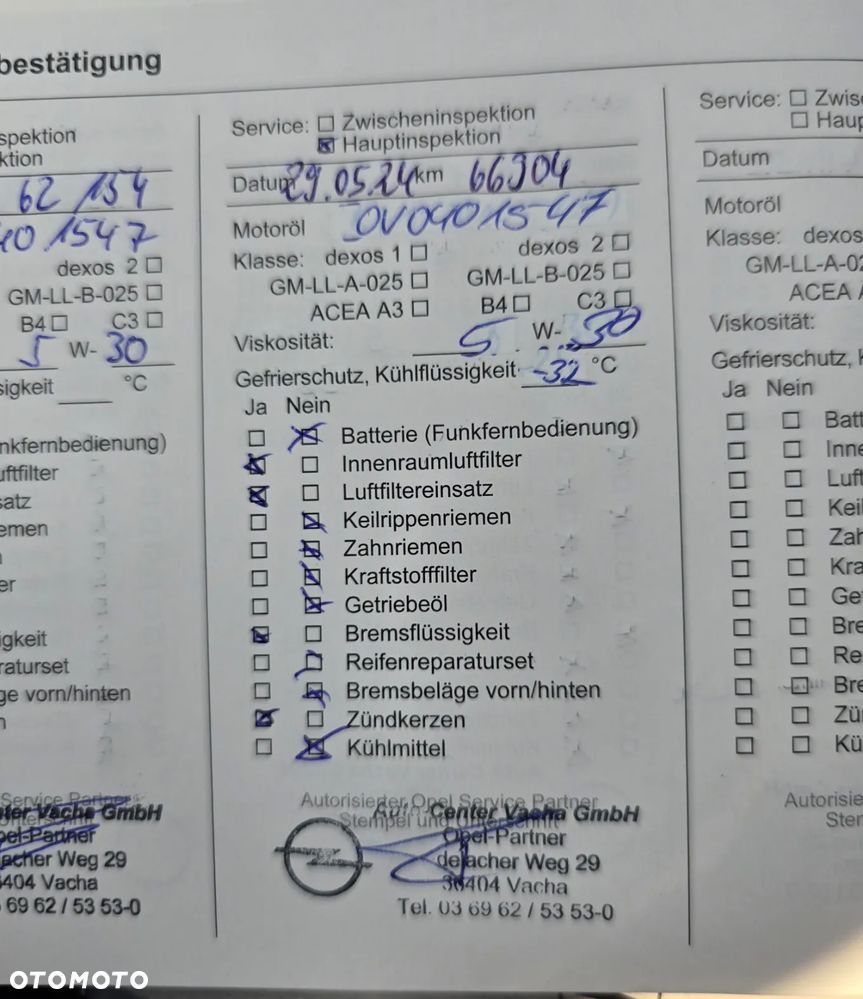 bestätigung
spektion
ktion
62 154
40 1547
dexos 2
GM-LL-B-025
B4 C3
5 W-30
sigkeit °C
nkfernbedienung)
uftfilter
satz
emen
er
igkeit
raturset
ge vorn/hinten
n
Service Partner
nter Vacha GmbH
pel-Partner
acher Weg 29
6404 Vacha
6 69 62 / 53 53-0
Service: Zwischeninspektion
Hauptinspektion
Datum 29.05.24 km 66904
Motoröl OV0401547
Klasse: dexos 1 dexos 2
GM-LL-A-025 GM-LL-B-025
ACEA A3 B4 C3
Viskosität: 5 W-30
Gefrierschutz, Kühlflüssigkeit -32 °C
Ja Nein
Batterie (Funkfernbedienung)
Innenraumluftfilter
Luftfiltereinsatz
Keilrippenriemen
Zahnriemen
Kraftstofffilter
Getriebeöl
Bremsflüssigkeit
Reifenreparaturset
Bremsbeläge vorn/hinten
Zündkerzen
Kühlmittel
Autorisierter Opel Service Partner
Stempel und Unterschrift
Center Vacha GmbH
Opel-Partner
delacher Weg 29
36404 Vacha
Tel. 03 69 62 / 53 53-0
Service: Zwisc
Haup
Datum
Motoröl
Klasse: dexos
GM-LL-A-02
ACEA A
Viskosität:
Gefrierschutz, K
Ja Nein
Batt
Inne
Luft
Keil
Zah
Kra
Get
Bre
Re
Bre
Zü
Kü
Autorisie
Stem
OTOMOTO